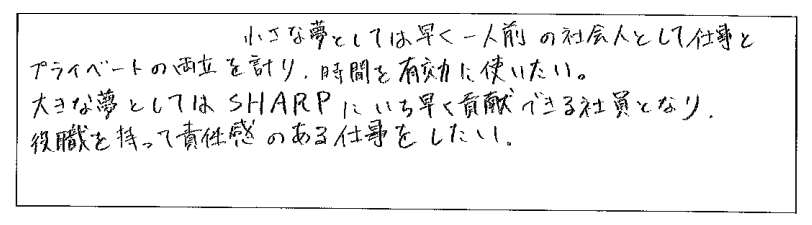 小さな夢としては早く一人前の社会人として仕事と
プライベートの両立を計り、時間を有効に使いたい。
大きな夢としてはSHARPにいち早く貢献できる社員となり、
役職を持って責任感のある仕事をしたい。